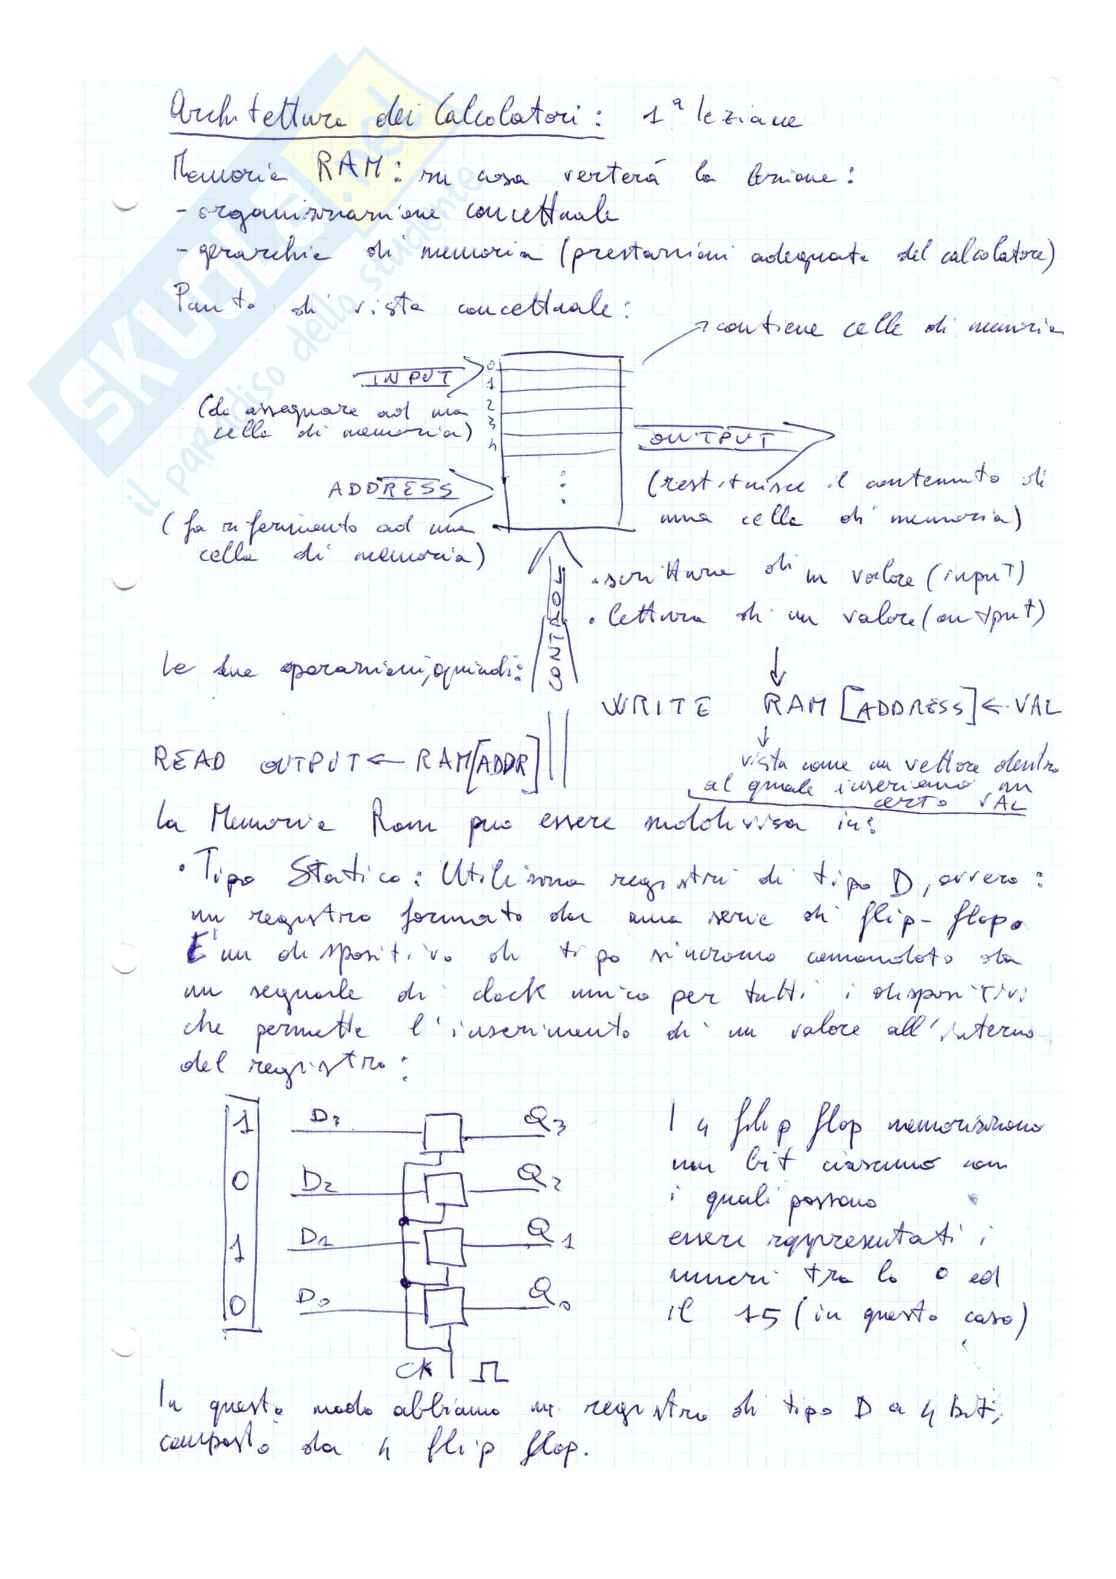 Architettura dei Calcolatori: 1ª lezione
Memoria RAM: su cosa verterà la lezione:
- organizzazione concettuale
- gerarchie di memoria (prestazioni adeguate del calcolatore)
Punto di vista concettuale:
contiene celle di memoria
INPUT
(da assegnare ad una
cella di memoria)
0
1
2
3
4
OUTPUT
(restituisce il contenuto di
una cella di memoria)
ADDRESS
(fa riferimento ad una
cella di memoria)
CONTROL
• scrittura di un valore (input)
• lettura di un valore (output)
Le due operazioni, quindi:
WRITE RAM [ADDRESS] ← VAL
READ OUTPUT ← RAM[ADDR]
vista come un vettore dentro
al quale inseriamo un
certo VAL
La Memoria Ram può essere suddivisa in:
• Tipo Statico: Utilizzano registri di tipo D, ovvero:
un registro formato da una serie di flip-flop.
E' un dispositivo di tipo sincrono comandato da
un segnale di clock unico per tutti i dispositivi
che permette l'inserimento di un valore all'interno
del registro:
1 D3 Q3
0 D2 Q2
1 D1 Q1
0 D0 Q0
CK
I 4 flip flop memorizzano
un bit ciascuno con
i quali possono
essere rappresentati i
numeri tra lo 0 ed
il 15 (in questo caso)
In questo modo abbiamo un registro di tipo D a 4 bit,
composto da 4 flip flop.
SKUOLA.net
il paradiso dello studente